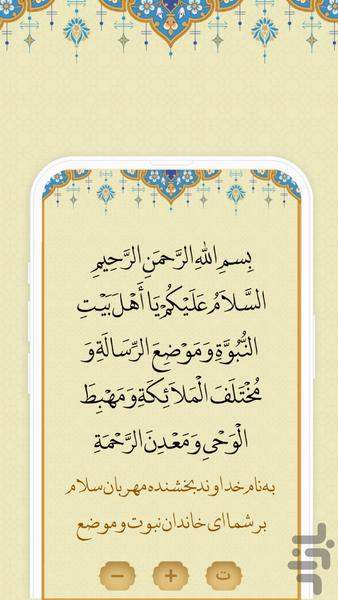 بِسمِ اللهِ الرَّحمَنِ الرَّحِيمِ
السَّلَامُ عَلَيْكُمْ يَا أَهْلَ بَيْتِ
النُّبُوَّةِ وَ مَوْضِعَ الرِّسَالَةِ وَ
مُخْتَلَفَ الْمَلَائِكَةِ وَ مَهْبِطَ
الْوَحْيِ وَ مَعْدِنَ الرَّحْمَةِ
به نام خداوند بخشنده مهربان سلام
بر شما ای خاندان نبوت و موضع
ت + −
بازار